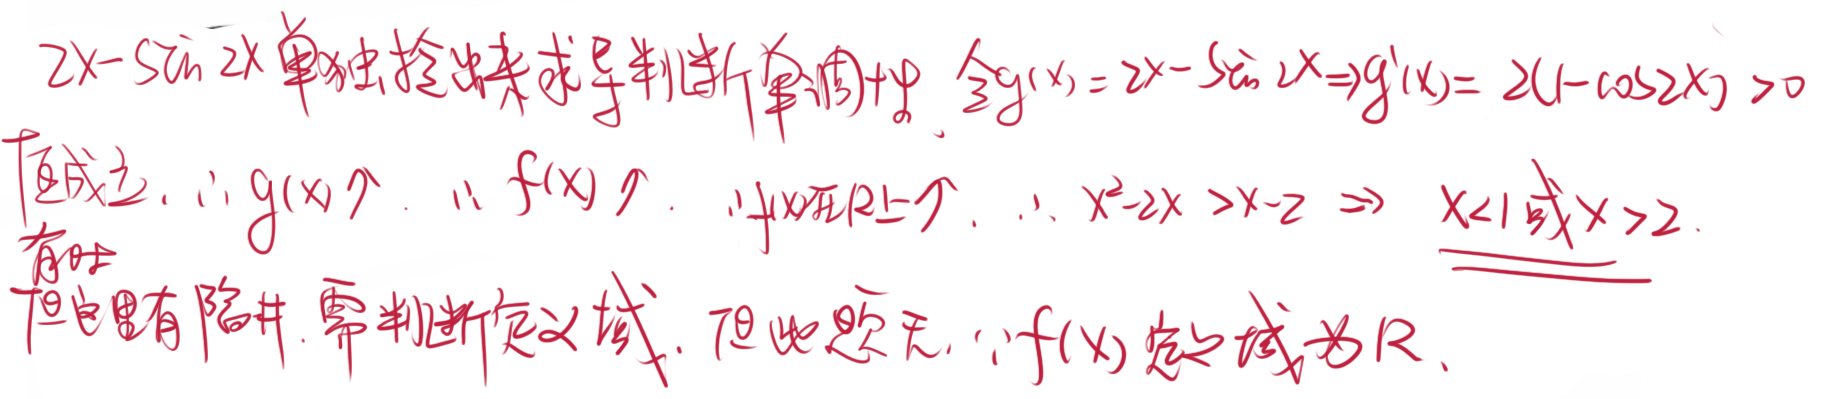 2x-sin 2x 单独拎出来求导判断单调性. 令g(x)=2x-sin 2x⇒g'(x)=2(1-cos2x)>0
恒成立. ∴g(x)↑. ∴f(x)↑. ∵f(x)在R上↑. ∴x²-2x>x-2 ⇒ x<1或x>2.
有时
但这里有陷井. 需判断定义域. 但此题无. ∵f(x)定义域为R.